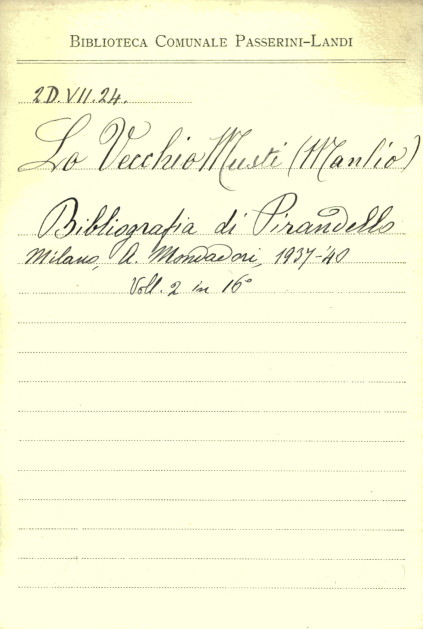 BIBLIOTECA COMUNALE PASSERINI-LANDI
2D.VII.24.
Lo Vecchio Musti (Manlio)
Bibliografia di Pirandello
Milano, A. Mondadori, 1937-'40
Voll. 2 in 16°